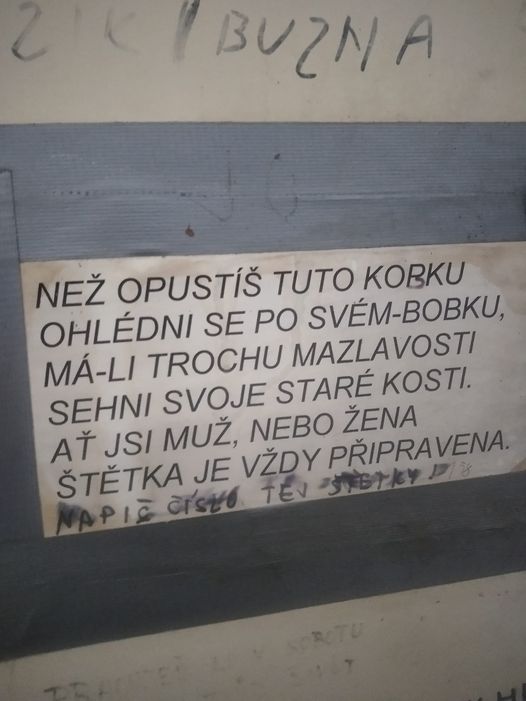 BUZNA
NEŽ OPUSTÍŠ TUTO KOBKU
OHLÉDNI SE PO SVÉM-BOBKU,
MÁ-LI TROCHU MAZLAVOSTI
SEHNI SVOJE STARÉ KOSTI.
AŤ JSI MUŽ, NEBO ŽENA
ŠTĚTKA JE VŽDY PŘIPRAVENA.
NAPIČ ČÍSLO TÉJ ŠTĚTKY